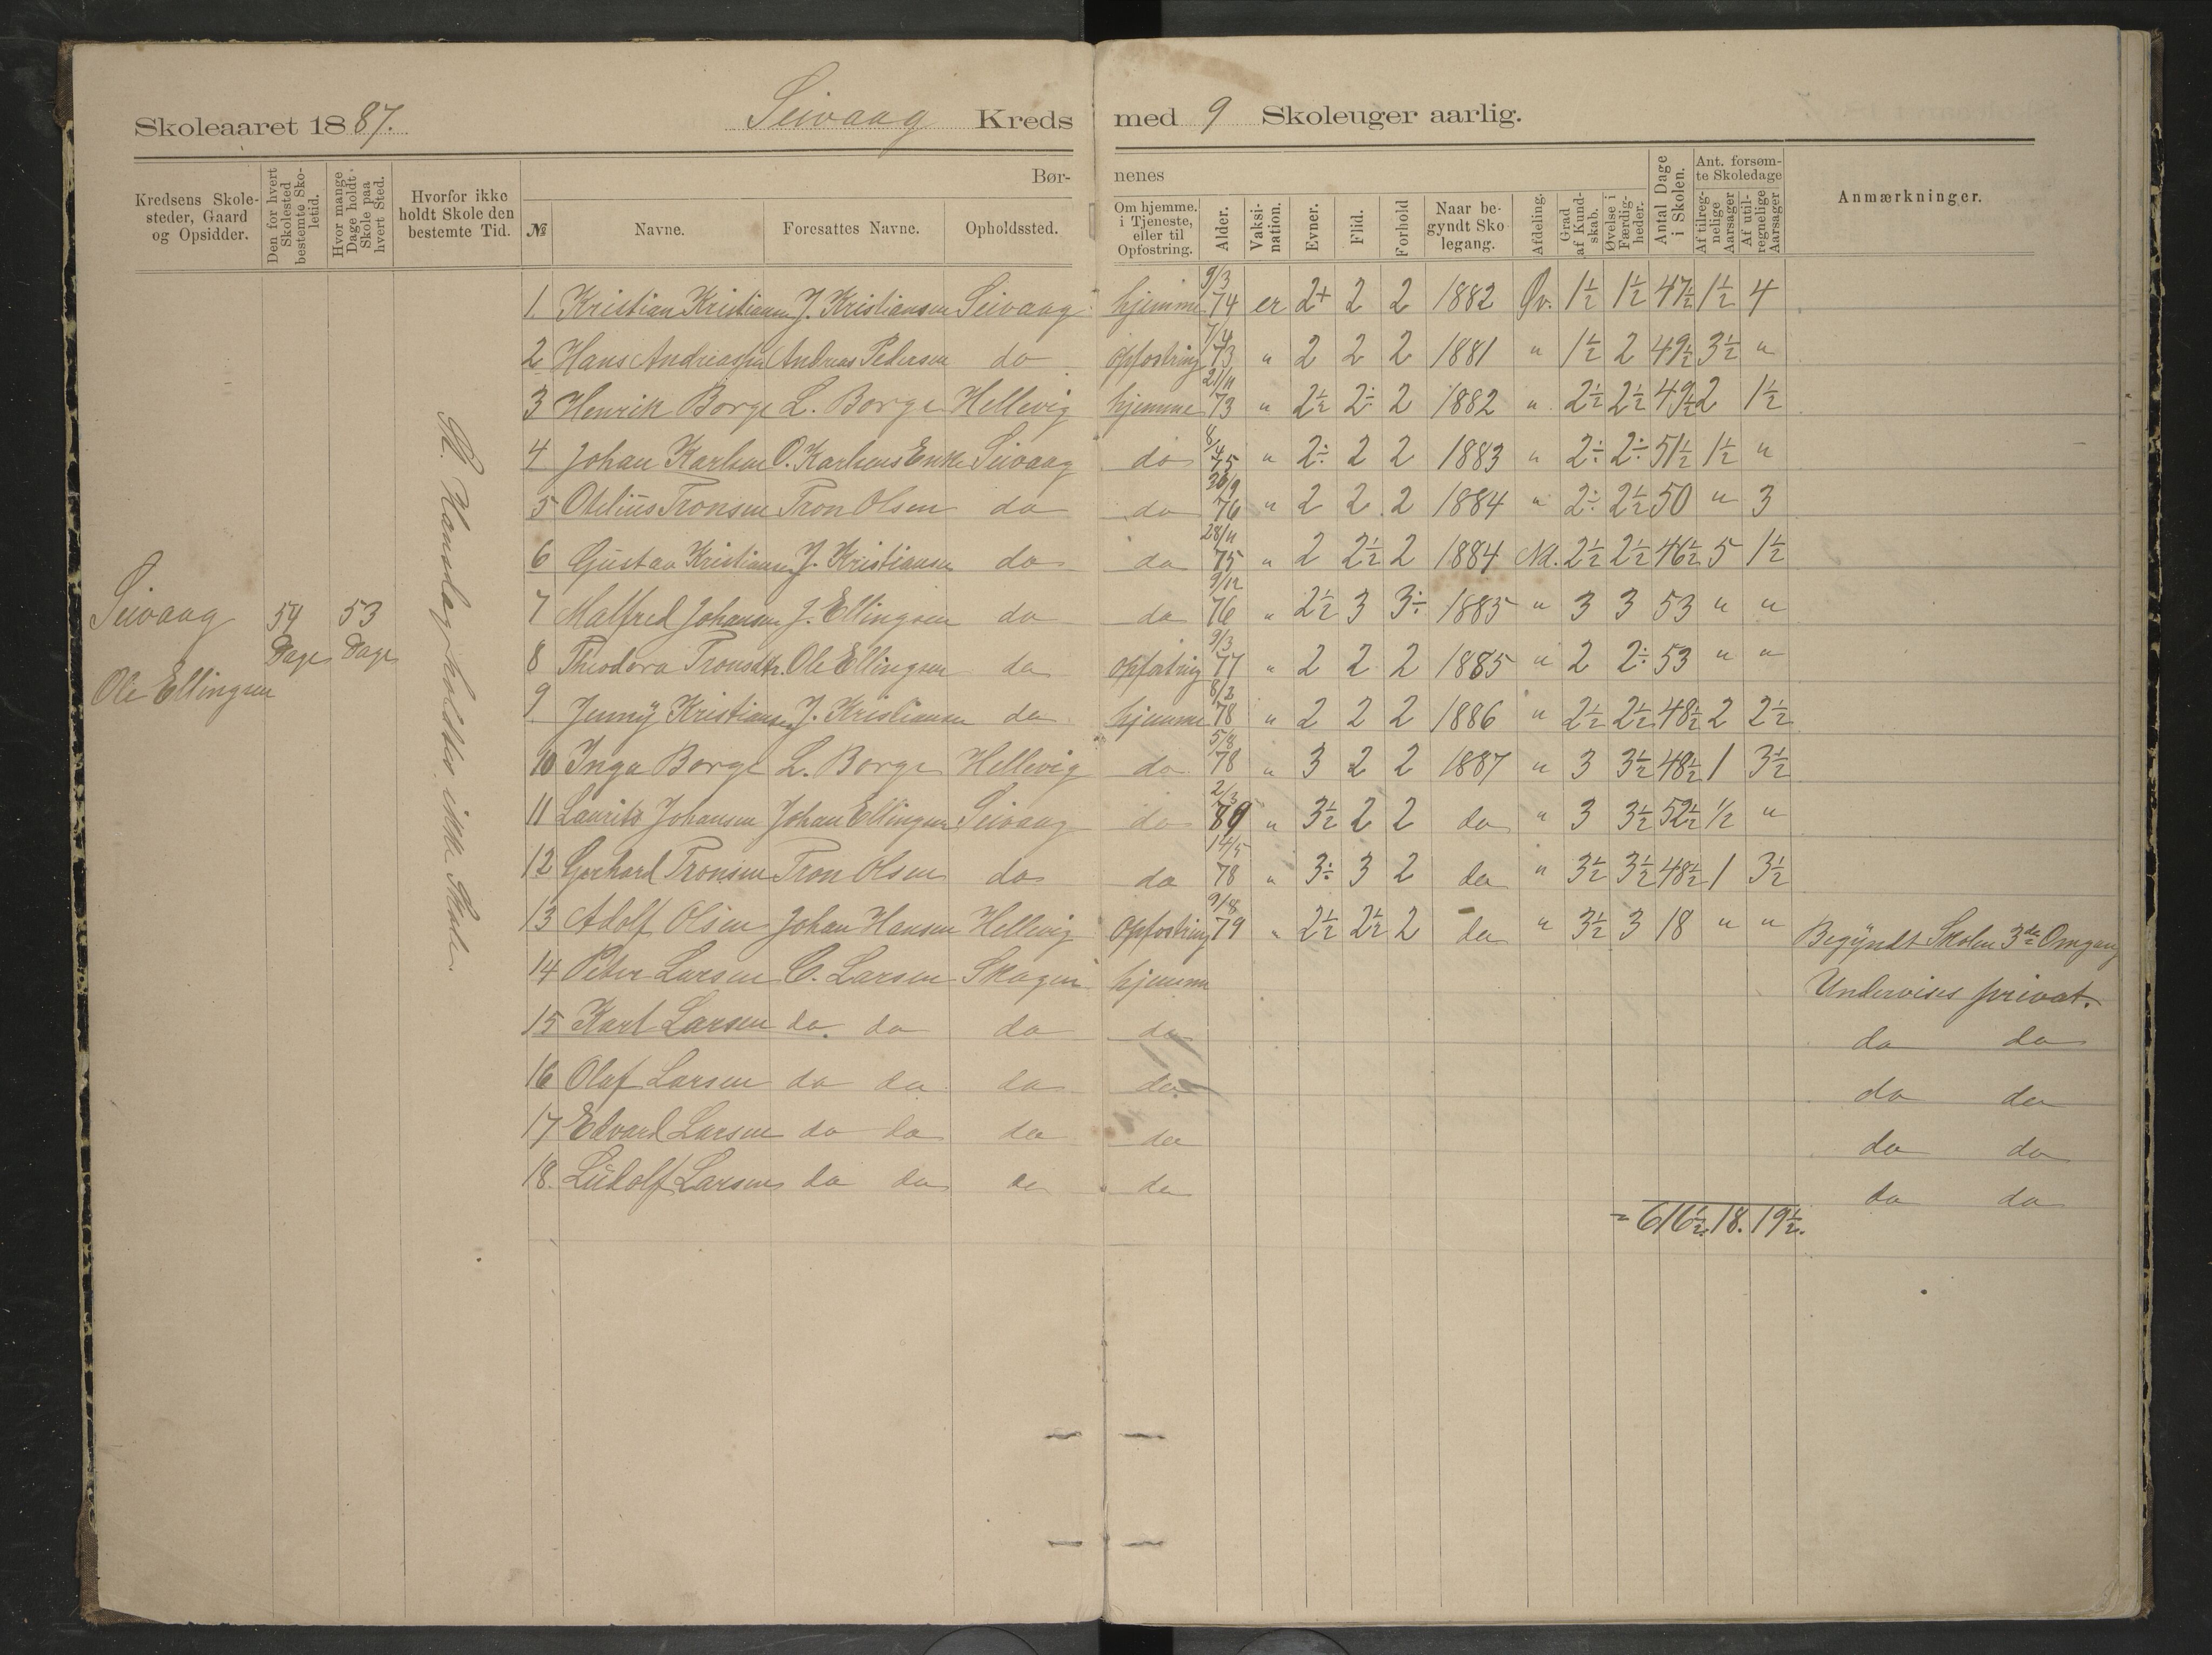 Skoleaaret 1887. Seivaag Kreds med 9 Skoleuger aarlig.
Kredsens Skolesteder, Gaard og Opsidder. Den for hvert Skolested bestemte Skoletid. Hvor mange Dage holdt Skole paa hvert Sted. Hvorfor ikke holdt Skole den bestemte Tid. Børnenes
№ Navne. Foresattes Navne. Opholdssted. Om hjemme. i Tjeneste, eller til Opfostring. Alder. Vaksination. Evner. Flid. Forhold Naar begyndt Skolegang. Afdeling. Grad af Kundskab. Øvelse i Færdigheder. Antal Dage i Skolen. Ant. forsømte Skoledage Af tilregnelige Aarsager Af utilregnelige Aarsager Anmærkninger.
Seivaag 54 Dage 53 Dage
Ole Ellingsen
holdtes ikke Skole
1 Kristian Kristiansen J. Kristiansen Seivaag hjemme 9/3 74 er 2+ 2 2 1882 Øv. 1½ 1½ 47½ 1½ 4
2 Hans Andreassen Andreas Pedersen do opfostring 7/4 73 " 2 2 2 1881 " 1½ 2 49½ 3½ "
3 Henrik Borge L. Borge Hellevig hjemme 21/11 73 " 2½ 2÷ 2 1882 " 2½ 2½ 49½ 2 1½
4 Johan Karlsen O. Karlsens Enke Seivaag do 8/4 75 " 2÷ 2 2 1883 " 2÷ 2÷ 51½ 1½ "
5 Otelius Tronsen Tron Olsen do do 26/9 76 " 2 2 2 1884 " 2÷ 2½ 50 " 3
6 Gustav Kristiansen J. Kristiansen do do 28/11 75 " 2 2½ 2 1884 Nd. 2½ 2½ 46½ 5 1½
7 Malfred Johansen J. Ellingsen do do 9/12 76 " 2½ 3 3÷ 1885 " 3 3 53 " "
8 Theodora Tronsdtr. Ole Ellingsen do opfostring 9/3 77 " 2 2 2 1885 " 2 2÷ 53 " "
9 Jenny Kristiansen J. Kristiansen do hjemme 8/2 78 " 2 2 2 1886 " 2½ 2½ 48½ 2 2½
10 Inga Borge L. Borge Hellevig do 5/8 78 " 3 2 2 1887 " 3 3½ 48½ 1 3½
11 Laurits Johansen Johan Ellingsen Seivaag do 2/3 " 3½ 2 2 do " 3 3½ 52½ ½ "
12 Gerhard Tronsen Tron Olsen do do 14/5 78 " 3÷ 3 2 do " 3½ 3½ 48½ 1 3½
13 Adolf Olsen Johan Hansen Hellevig Opfostring 9/8 79 " 2½ 2½ 2 do " 3½ 3 18 " " Begyndt Skolen 3de Omgang
14 Peter Larsen C. Larsen Skagen hjemme Undervises privat.
15 Karl Larsen do do do do do do
16 Olaf Larsen do do do do do do
17 Edvard Larsen do do do do do do
18. Ludolf Larsen do do do do do do
= 616½. 18. 19½.